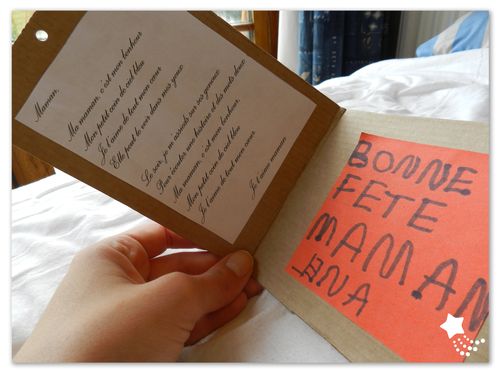 Maman,
Ma maman, c'est mon bonheur
Mon petit coin de ciel bleu
Je l'aime de tout mon cœur
Elle peut le voir dans mes yeux.
Le soir, je m'assieds sur ses genoux
Pour écouter une histoire et des mots doux
Ma maman, c'est mon bonheur,
Mon petit coin de ciel bleu
Je l'aime de tout mon cœur
Je t'aime maman
BONNE
FETE
MAMAN